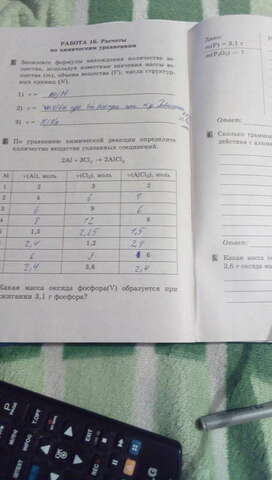 РАБОТА 16. Расчеты
по химическим уравнениям
Запишите формулы нахождения количества ве-
щества, используя известные значения массы ве-
щества (m), объема вещества (V), числа структур-
ных единиц (N).
1) ν = m/M
2) ν =
3) ν = N/Na
По уравнению химической реакции определите
количества вещества указанных соединений.
2Al + 3Cl₂ → 2AlCl₃
№ ν(Al), моль ν(Cl₂), моль ν(AlCl₃), моль
1 2 3 2
2 4 6
3 6 9 6
4 8 12 8
5 1,5 2,25 1,5
2,4 1,2
6 9 6
2,4 3,6 2,4
Какая масса оксида фосфора(V) образуется при
сжигании 3,1 г фосфора?
Дано:
m(P) = 3,1 г
m(P₂O₅) = ?
Ответ:
Сколько грамм
действия с алюм
Ответ:
Какая масса
3,6 г оксида ма
T.OPT
INFO
EXIT
REC